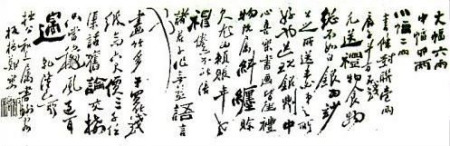 大幅六兩
中幅四兩
小幅二兩
書條對聯一兩
扇子斗方五錢
凡送禮物食物
總不如白銀為妙
公之所送未必弟之
所好也送現銀則中
心喜樂書畫皆佳禮
物既屬糾纏賒
欠尤為賴賬年老
神倦不能陪
諸君子作無益語言
也
畫竹多於買竹錢
紙高六尺價三千任
渠話舊論交接
只當秋風過耳
邊
乾隆己卯
拙公和上屬書謝客
板橋鄭燮